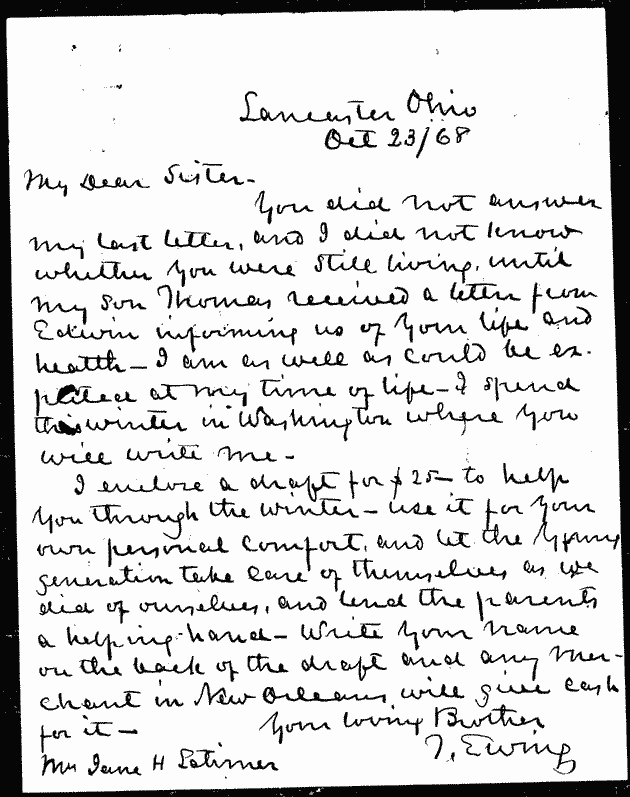 Lancaster Ohio
Oct 23/68
My Dear Sister-
You did not answer
my last letter, and I did not know
whether you were still living, until
my son Thomas received a letter from
Edwin informing us of your life and
health - I am as well as could be ex-
pected at my time of life - I spend
this winter in Washington where you
will write me -
I enclose a draft for $25- to help
you through the winter - use it for your
own personal comfort, and let the young
generation take care of themselves as we
did of ourselves, and lend the parents
a helping hand - Write your name
on the back of the draft and any mer-
chant in New Orleans will give cash
for it -
Your loving Brother
T. Ewing
Mrs Jane H Latimer